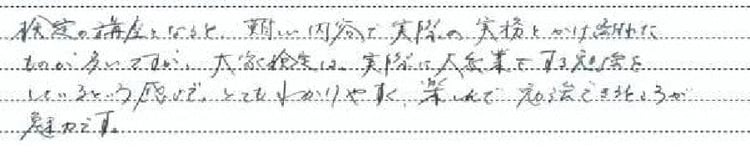 検定の講座となると、難しい内容で実際の実務とかけ離れた
ものが多いですが、大家検定は、実際に大家業をする勉強を
しているという感じで、とてもわかりやすく、楽しんで勉強できるところが
魅力です。